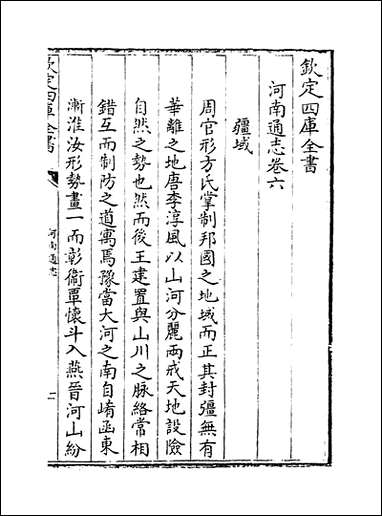 欽定四庫全書
河南通志卷六
疆域
周官形方氏掌制邦國之地域而正其封疆無有
華離之地唐李淳風以山河分麗兩戒天地設險
自然之勢也然而後王建置與山川之脉絡常相
錯互而制防之道寓焉豫當大河之南自崤函東
漸淮汝形勢畫一而彰衞覃懷斗入燕晉河山紛
欽定四庫全書
河南通志